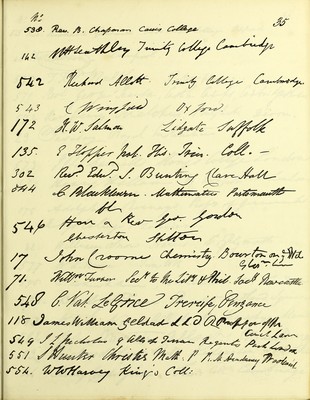 No
35
538 Revd. B. Chapman Caius College
142 Trinity College Cambridge
542 Richard Allott Trinity College Cambridge
543 C Wingfield Oxford
172 H. W. Salmon Lidgate Suffolk
135. T Hopper Nat. His. Trin. Coll.
302 Revd. Edwd. S. Bunting Clare Hall
C Blackburn Mathematics Portsmouth
546 Hon & Rev Geo. Gordon
Chesterton Stilton
17 John Croome Chemistry Bourton on ye Wd
71. Willm Turner Secy to the Lit. & Phil. Socy Newcastle
548 C. Val. LeGrice Trereife, Penzance
118 James William Geldard LL.D Professor of the
Civil Law
549 J. L. Regents Park London
551 J Hunter Christie Math. P. R. M. Academy Woolwich
554. W W Harvey King's Coll: